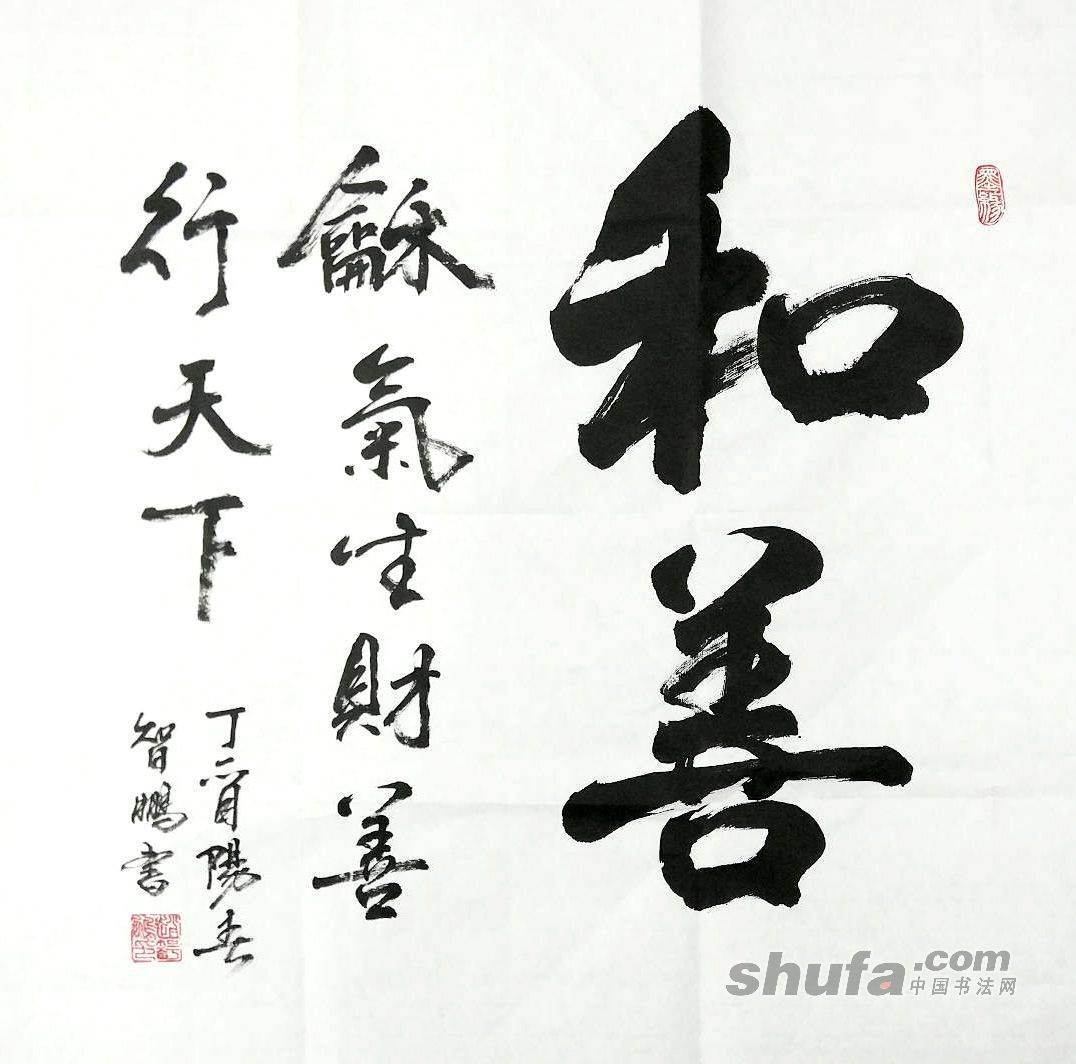 和善
龢氣生財善
行天下
丁酉陽春
智鵬書
墨緣
shufa.com
中国书法网